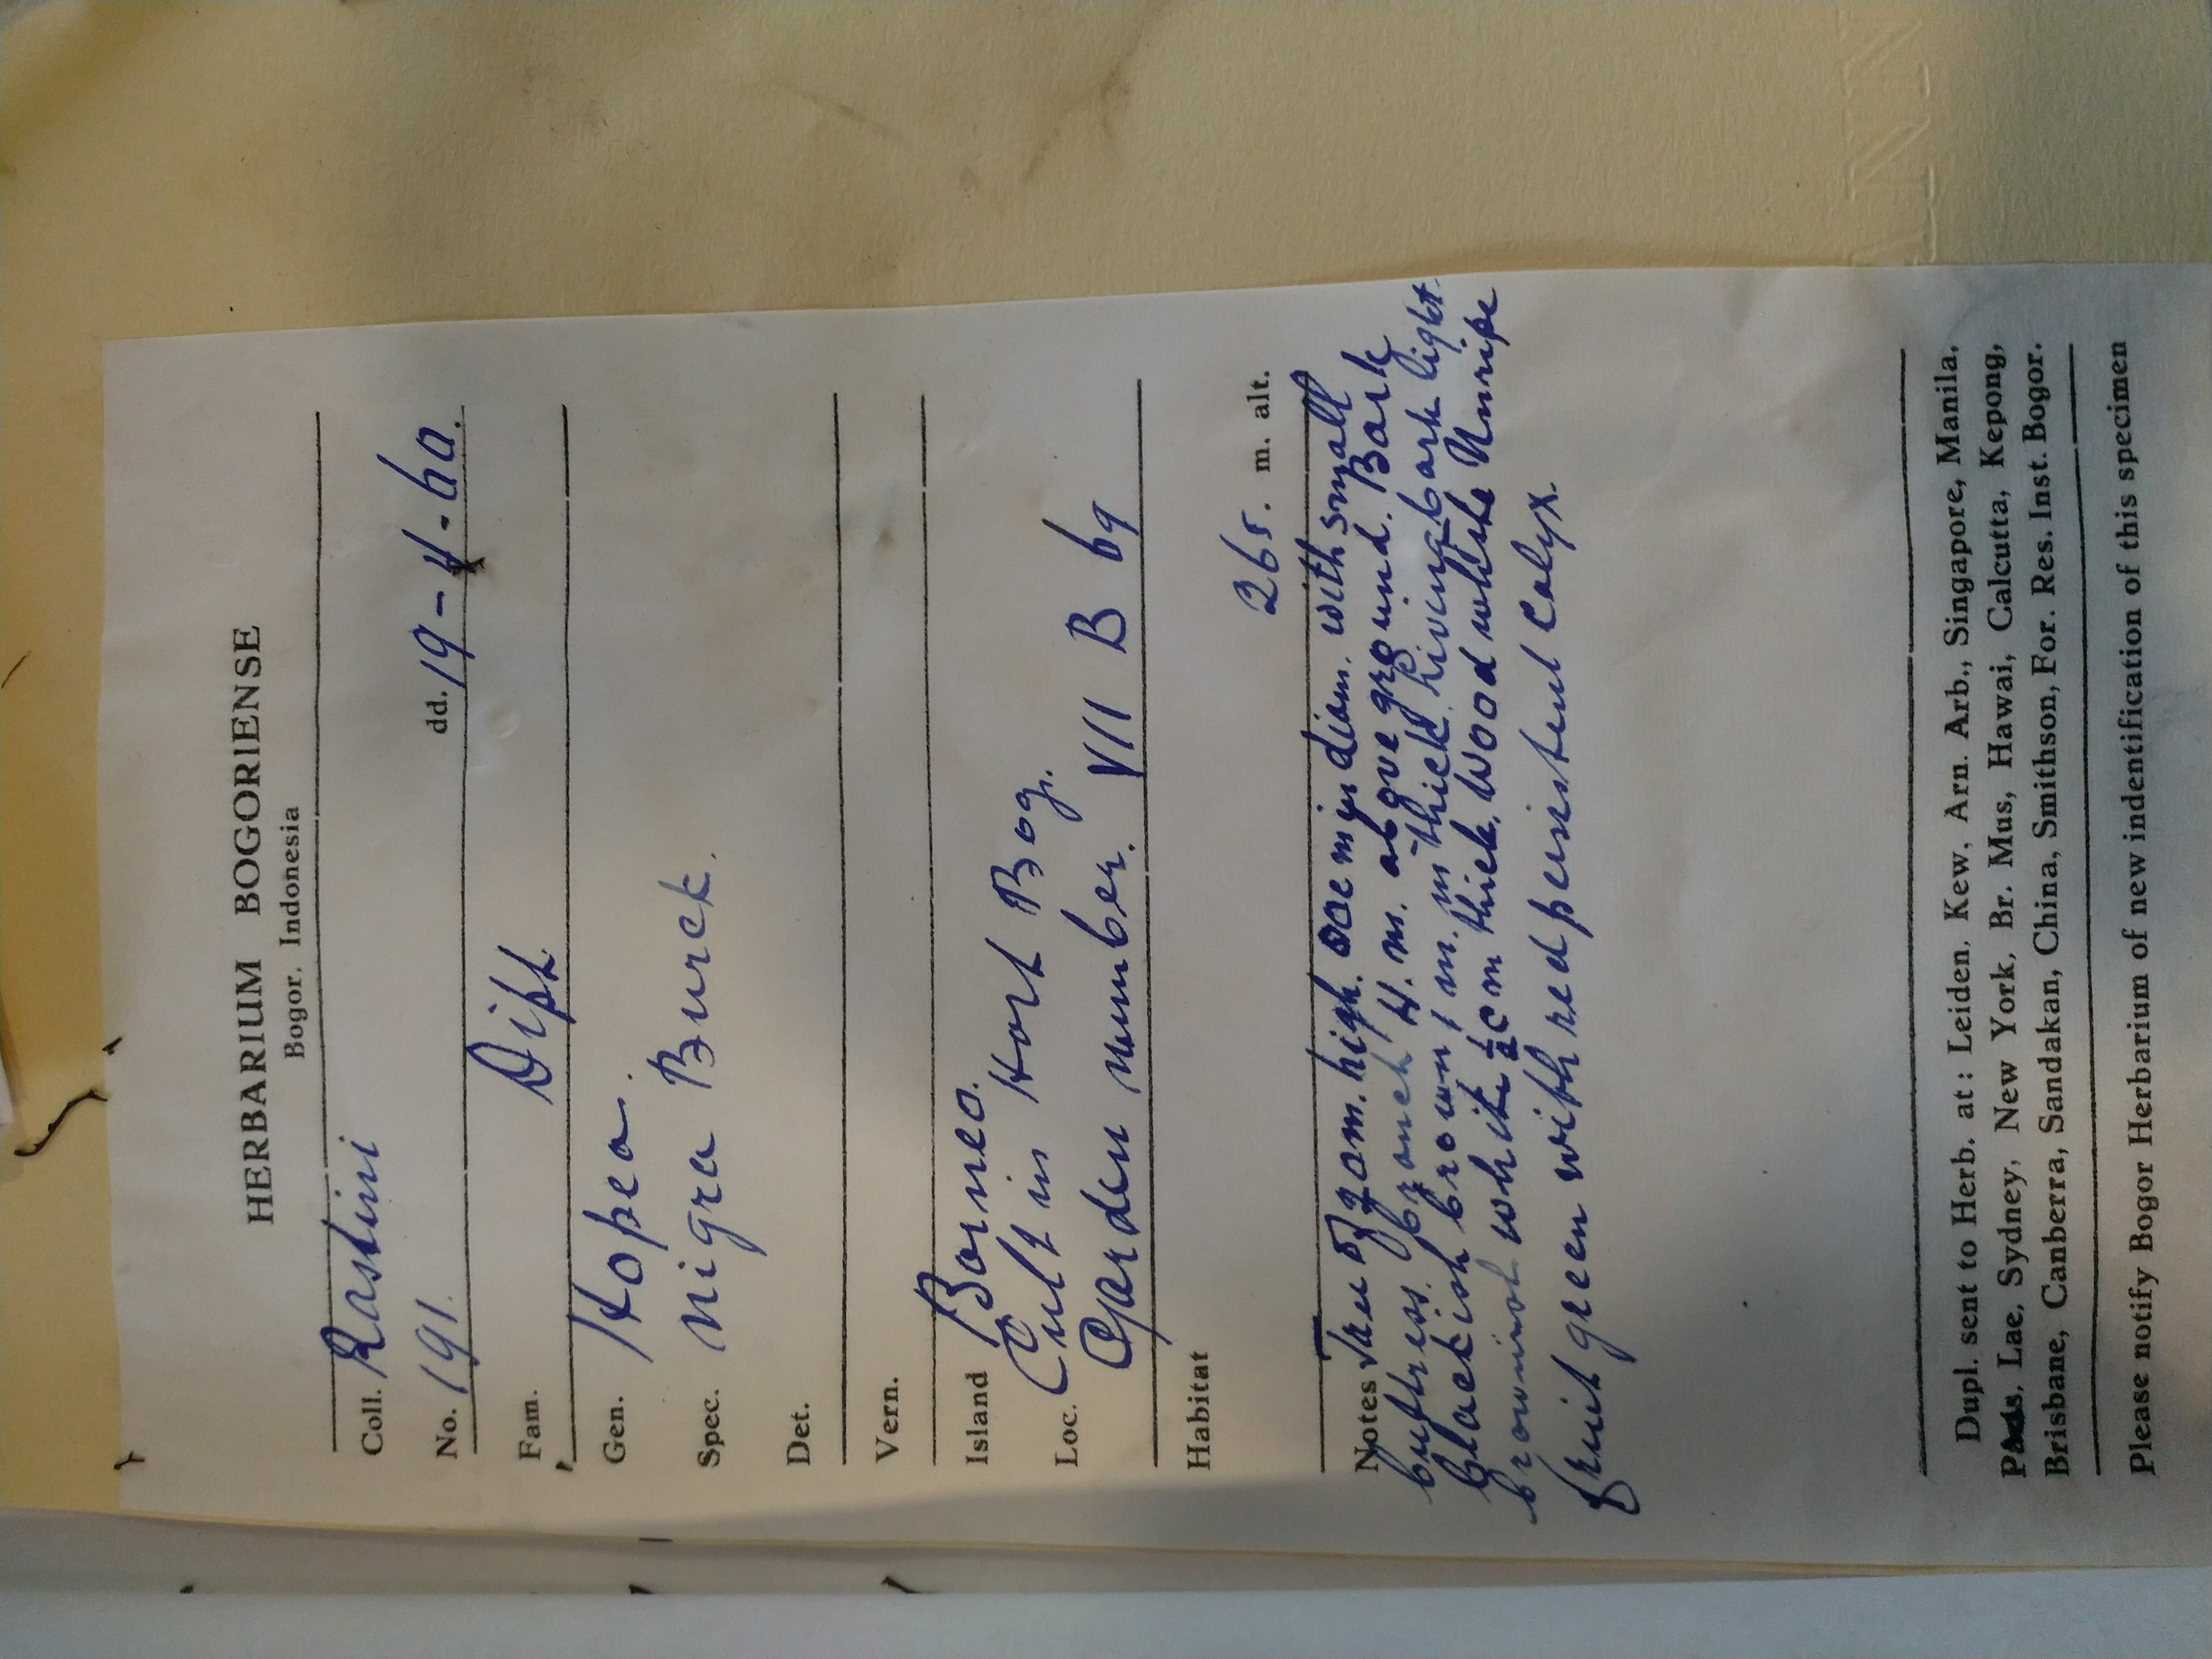 HERBARIUM BOGORIENSE
Bogor. Indonesia
Coll. Rastini
No. 191. dd. 19-4-60.
Fam. Dipt.
Gen. Hopea.
Spec. nigra Burck.
Det.
Vern.
Island Borneo.
Loc. Cult in Hort Bog.
Garden number. VII B 69
Habitat
265. m. alt.
Notes high. diam. with small
buttress. branch 4. m. above ground. Bark
blackish brown 1 m. m thick living bark light
brownish white ½ cm thick. Wood white Unripe
fruit green with red persistent calyx.
Dupl. sent to Herb. at : Leiden, Kew, Arn. Arb., Singapore, Manila,
Lae, Sydney, New York, Br. Mus, Hawai, Calcutta, Kepong,
Brisbane, Canberra, Sandakan, China, Smithson, For. Res. Inst. Bogor.
Please notify Bogor Herbarium of new indentification of this specimen